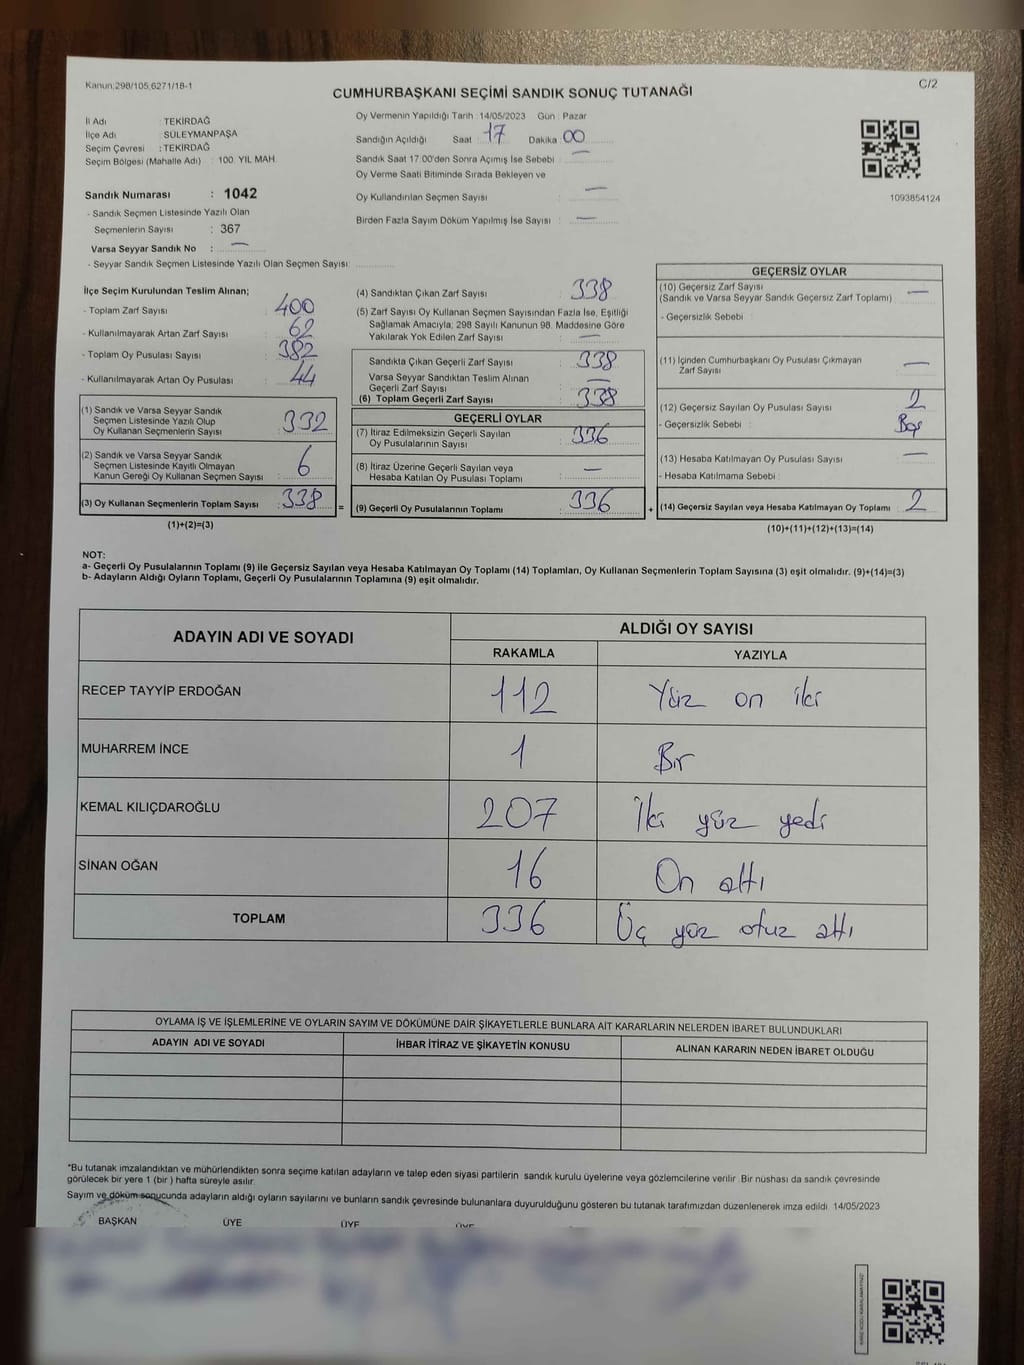 Kanun:298/105,6271/18-1
C/2
CUMHURBAŞKANI SEÇİMİ SANDIK SONUÇ TUTANAĞI
İl Adı : TEKİRDAĞ
İlçe Adı : SÜLEYMANPAŞA
Seçim Çevresi : TEKİRDAĞ
Seçim Bölgesi (Mahalle Adı) : 100. YIL MAH.
Sandık Numarası : 1042
- Sandık Seçmen Listesinde Yazılı Olan
Seçmenlerin Sayısı : 367
Varsa Seyyar Sandık No : —
- Seyyar Sandık Seçmen Listesinde Yazılı Olan Seçmen Sayısı:
Oy Vermenin Yapıldığı Tarih :14/05/2023 Gün : Pazar
Sandığın Açıldığı Saat : 17 Dakika : 00
Sandık Saat 17:00'den Sonra Açımış İse Sebebi : —
Oy Verme Saati Bitiminde Sırada Bekleyen ve
Oy Kullandırılan Seçmen Sayısı : —
Birden Fazla Sayım Döküm Yapılmış İse Sayısı : —
1093854124
İlçe Seçim Kurulundan Teslim Alınan;
- Toplam Zarf Sayısı : 400
- Kullanılmayarak Artan Zarf Sayısı : 62
- Toplam Oy Pusulası Sayısı : 382
- Kullanılmayarak Artan Oy Pusulası : 44
(1) Sandık ve Varsa Seyyar Sandık
Seçmen Listesinde Yazılı Olup
Oy Kullanan Seçmenlerin Sayısı : 332
(2) Sandık ve Varsa Seyyar Sandık
Seçmen Listesinde Kayıtlı Olmayan
Kanun Gereği Oy Kullanan Seçmen Sayısı : 6
(3) Oy Kullanan Seçmenlerin Toplam Sayısı : 338
(1)+(2)=(3)
=
(4) Sandıktan Çıkan Zarf Sayısı : 338
(5) Zarf Sayısı Oy Kullanan Seçmen Sayısından Fazla İse, Eşitliği
Sağlamak Amacıyla, 298 Sayılı Kanunun 98. Maddesine Göre
Yakılarak Yok Edilen Zarf Sayısı : —
Sandıkta Çıkan Geçerli Zarf Sayısı : 338
Varsa Seyyar Sandıktan Teslim Alınan
Geçerli Zarf Sayısı : —
(6) Toplam Geçerli Zarf Sayısı : 338
GEÇERLİ OYLAR
(7) İtiraz Edilmeksizin Geçerli Sayılan
Oy Pusulalarının Sayısı : 336
(8) İtiraz Üzerine Geçerli Sayılan veya
Hesaba Katılan Oy Pusulası Toplamı : —
(9) Geçerli Oy Pusulalarının Toplamı : 336
+
GEÇERSİZ OYLAR
(10) Geçersiz Zarf Sayısı : —
(Sandık ve Varsa Seyyar Sandık Geçersiz Zarf Toplamı)
- Geçersizlik Sebebi :
(11) İçinden Cumhurbaşkanı Oy Pusulası Çıkmayan
Zarf Sayısı : —
(12) Geçersiz Sayılan Oy Pusulası Sayısı : 2
- Geçersizlik Sebebi : Boş
(13) Hesaba Katılmayan Oy Pusulası Sayısı : —
- Hesaba Katılmama Sebebi :
(14) Geçersiz Sayılan veya Hesaba Katılmayan Oy Toplamı : 2
(10)+(11)+(12)+(13)=(14)
NOT:
a- Geçerli Oy Pusulalarının Toplamı (9) ile Geçersiz Sayılan veya Hesaba Katılmayan Oy Toplamı (14) Toplamları, Oy Kullanan Seçmenlerin Toplam Sayısına (3) eşit olmalıdır. (9)+(14)=(3)
b- Adayların Aldığı Oyların Toplamı, Geçerli Oy Pusulalarının Toplamına (9) eşit olmalıdır.
ADAYIN ADI VE SOYADI
ALDIĞI OY SAYISI
RAKAMLA YAZIYLA
RECEP TAYYİP ERDOĞAN 112 Yüz on iki
MUHARREM İNCE 1 Bir
KEMAL KILIÇDAROĞLU 207 İki yüz yedi
SİNAN OĞAN 16 On altı
TOPLAM 336 Üç yüz otuz altı
OYLAMA İŞ VE İŞLEMLERİNE VE OYLARIN SAYIM VE DÖKÜMÜNE DAİR ŞİKAYETLERLE BUNLARA AİT KARARLARIN NELERDEN İBARET BULUNDUKLARI
ADAYIN ADI VE SOYADI İHBAR İTİRAZ VE ŞİKAYETİN KONUSU ALINAN KARARIN NEDEN İBARET OLDUĞU
*Bu tutanak imzalandıktan ve mühürlendikten sonra seçime katılan adayların ve talep eden siyasi partilerin sandık kurulu üyelerine veya gözlemcilerine verilir. Bir nüshası da sandık çevresinde
görülecek bir yere 1 (bir ) hafta süreyle asılır.
Sayım ve döküm sonucunda adayların aldığı oyların sayılarını ve bunların sandık çevresinde bulunanlara duyurulduğunu gösteren bu tutanak tarafımızdan düzenlenerek imza edildi. 14/05/2023
BAŞKAN ÜYE ÜYE ÜYE